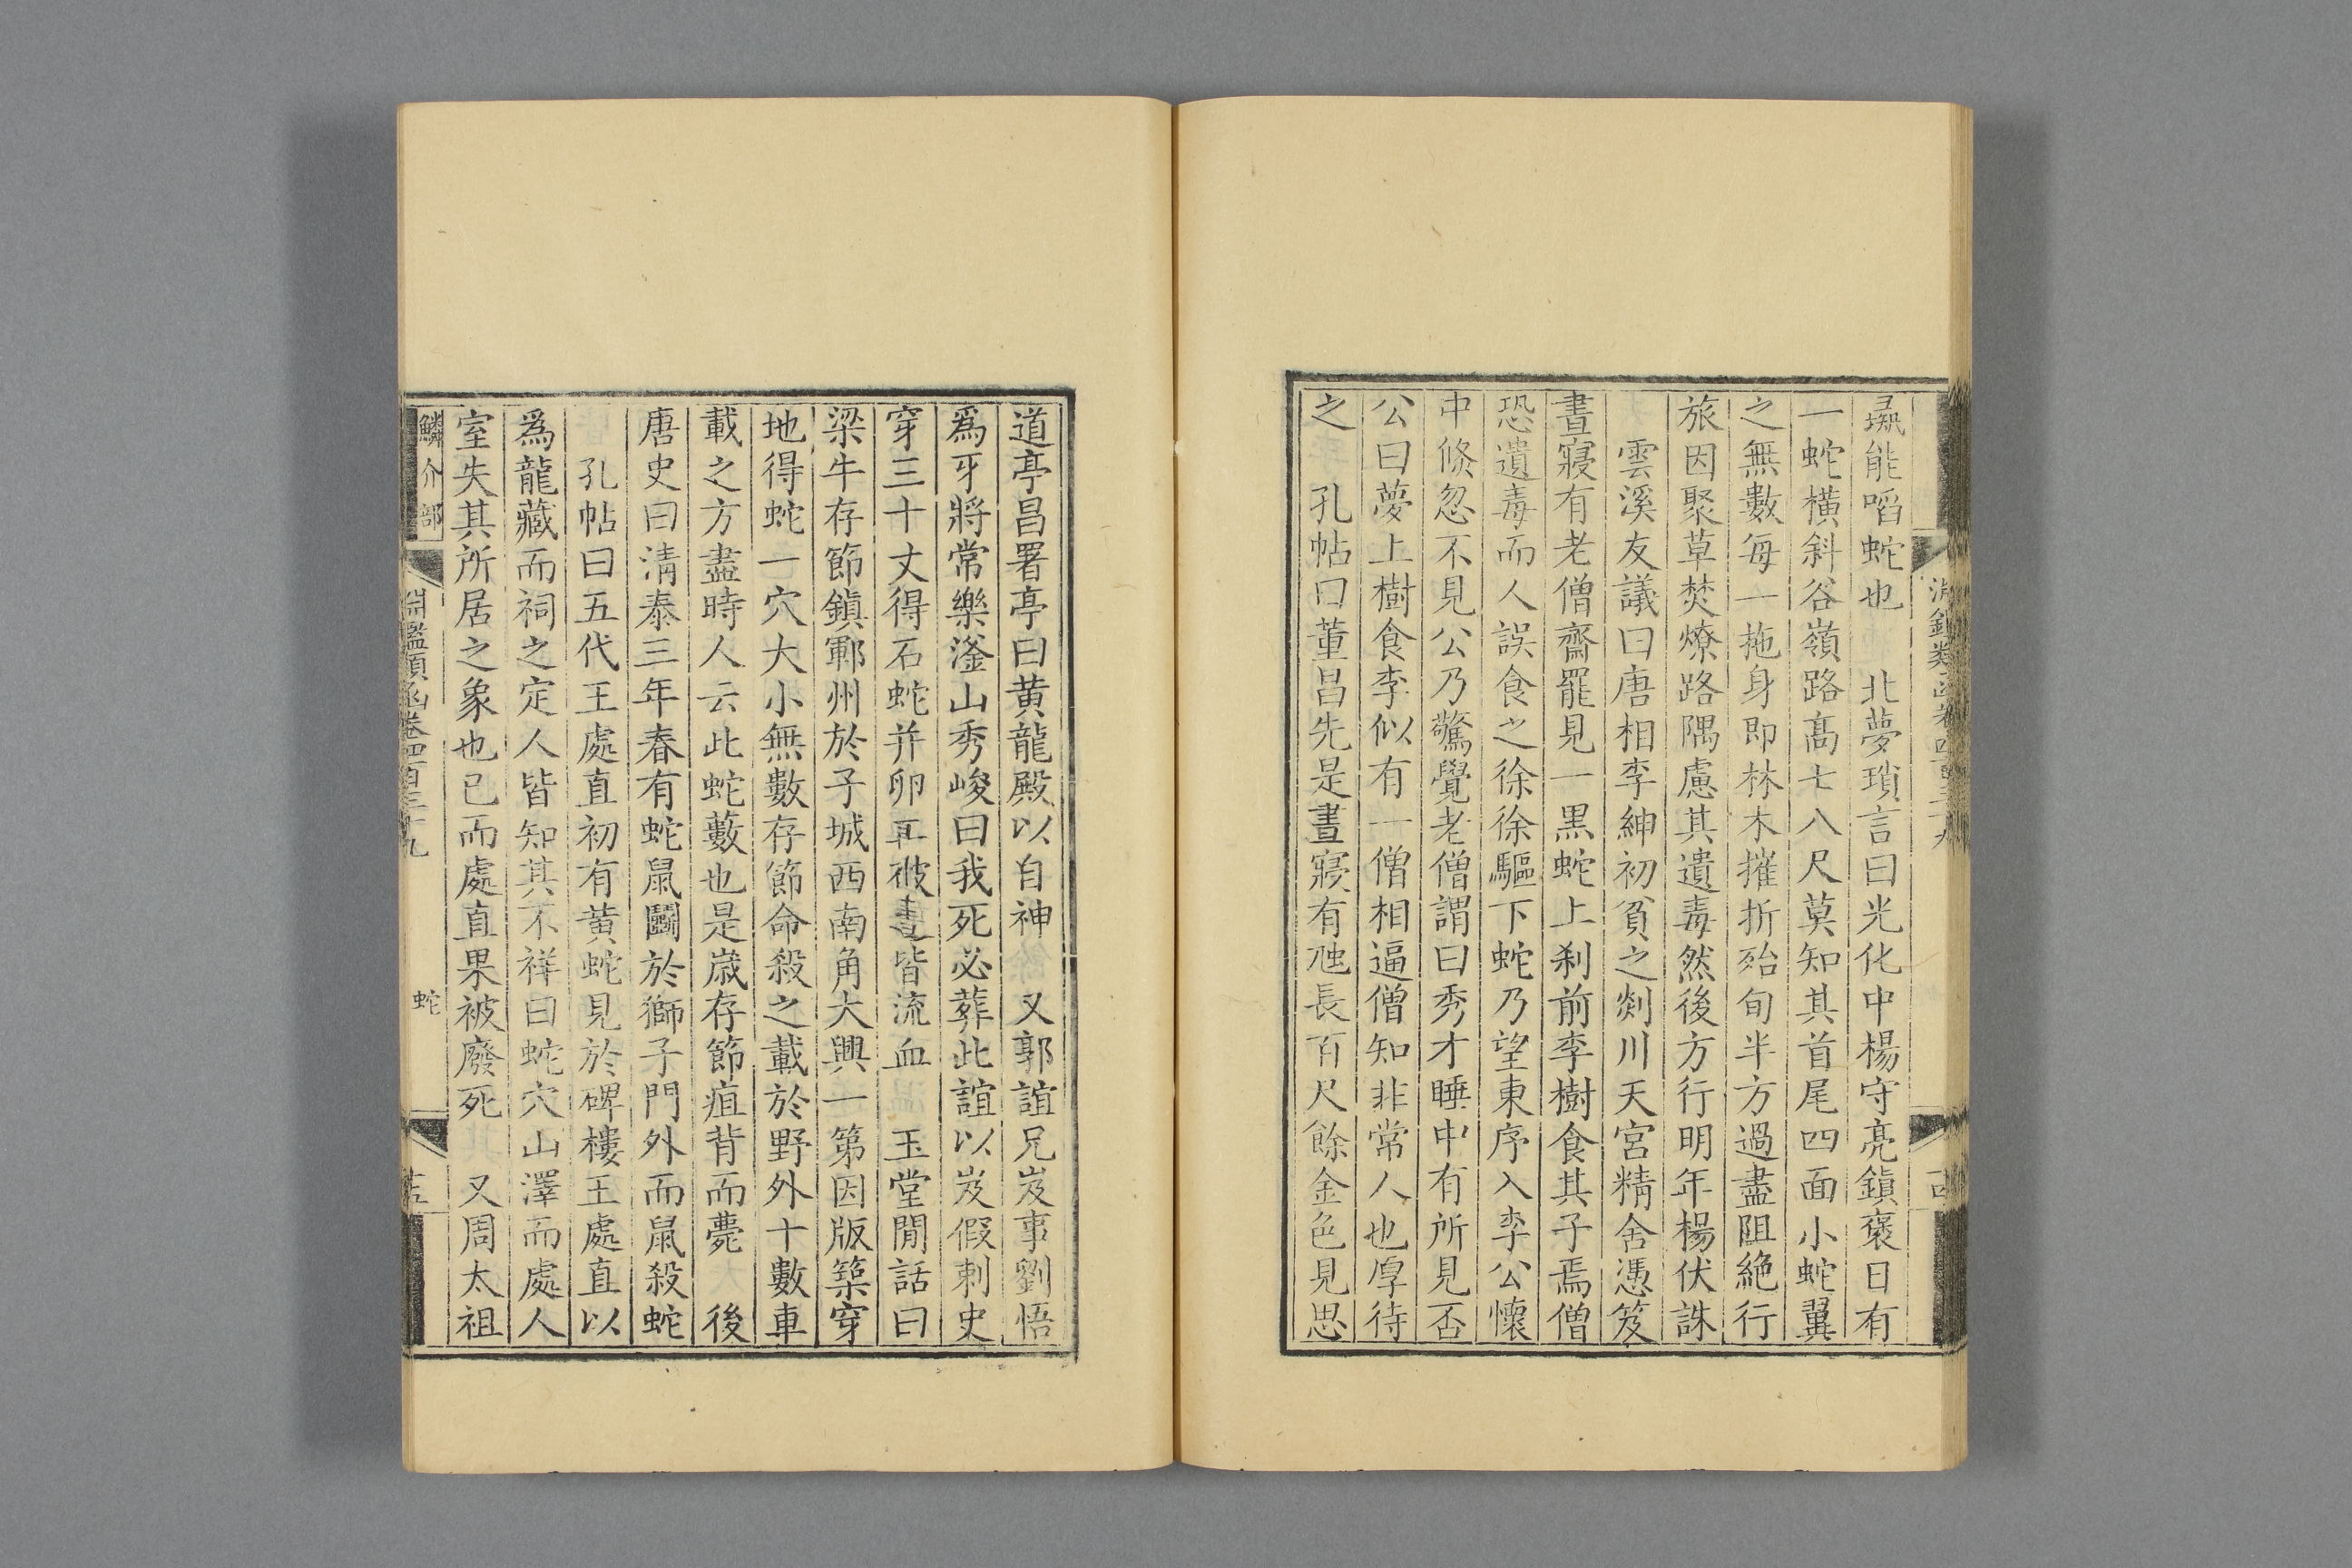 能㗖蛇也　北夢瑣言曰光化中楊守亮鎮褒日有
一蛇橫斜谷嶺路高七八尺莫知其首尾四面小蛇翼
之無數每一拖身即林木摧折殆旬半方過盡阻絕行
旅因聚草焚燎路隅慮其遺毒然後方行明年楊伏誅
雲溪友議曰唐相李紳初貧之剡川天宮精舍憑笈
晝寢有老僧齋罷見一黑蛇上刹前李樹食其子焉僧
恐遺毒而人誤食之徐徐驅下蛇乃望東序入李公懷
中倏忽不見公乃驚覺老僧謂曰秀才睡中有所見否
公曰夢上樹食李似有一僧相逼僧知非常人也厚待
之　孔帖曰董昌先是晝寢有虵長百尺餘金色見思
道亭昌署亭曰黄龍殿以自神　又郭誼兄岌事劉悟
爲牙將常樂滏山秀峻曰我死必葬此誼以岌假刺史
穿三十丈得石蛇并卵再被晝皆流血　玉堂閒話曰
梁牛存節鎮鄆州於子城西南角大興一第因版築穿
地得蛇一穴大小無數存節命殺之載於野外十數車
載之方盡時人云此蛇藪也是歲存節疽背而薨　後
唐史曰淸泰三年春有蛇鼠鬭於獅子門外而鼠殺蛇
孔帖曰五代王處直初有黄蛇見於碑樓王處直以
爲龍藏而祠之定人皆知其不祥曰蛇穴山澤而處人
室失其所居之象也已而處直果被廢死　又周太祖
鱗介部　淵鑑類函卷四百三十九　蛇　十五